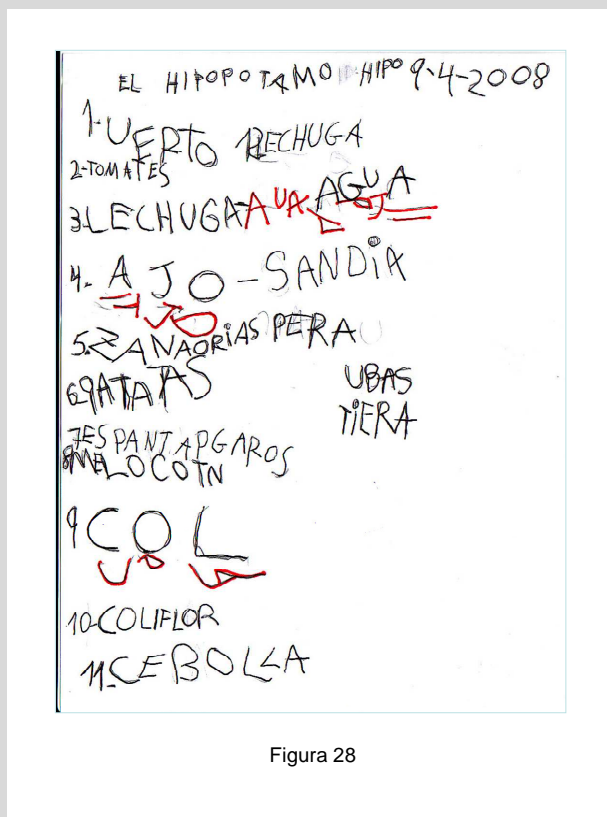 EL HIPOPOTAMO HIPO 9-4-2008
1-UERTO RECHUGA
2-TOMATES
3LECHUGA-AUA AGUA
4-AJO-SANDiA
AJO
5-ZANAORiAS PERA
6-PATATAS UBAS
TiERA
7ESPANTAPGAROS
8MELOCOTN
9COL
10-COLIFLOR
11-CEBOLLA
Figura 28